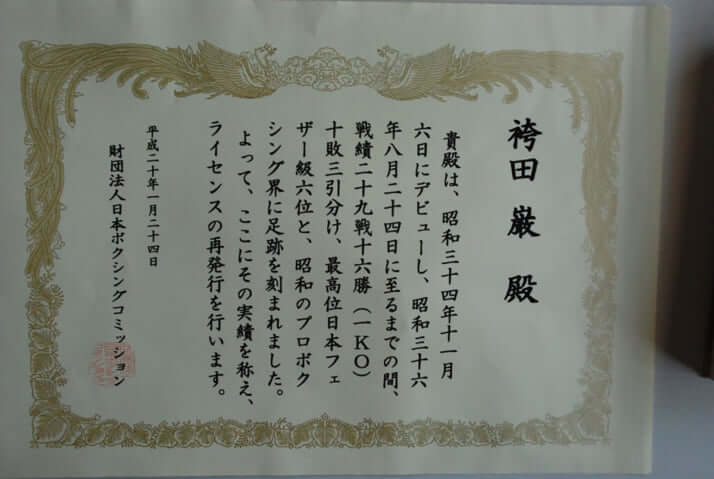 袴田巖殿
貴殿は、昭和三十四年十一月
六日にデビューし、昭和三十六
年八月二十四日に至るまでの間、
戦績二十九戦十六勝（一KO）
十敗三引分け、最高位日本フェ
ザー級六位と、昭和のプロボク
シング界に足跡を刻まれました。
よって、ここにその実績を称え、
ライセンスの再発行を行います。
平成二十年一月二十四日
財団法人日本ボクシングコミッション